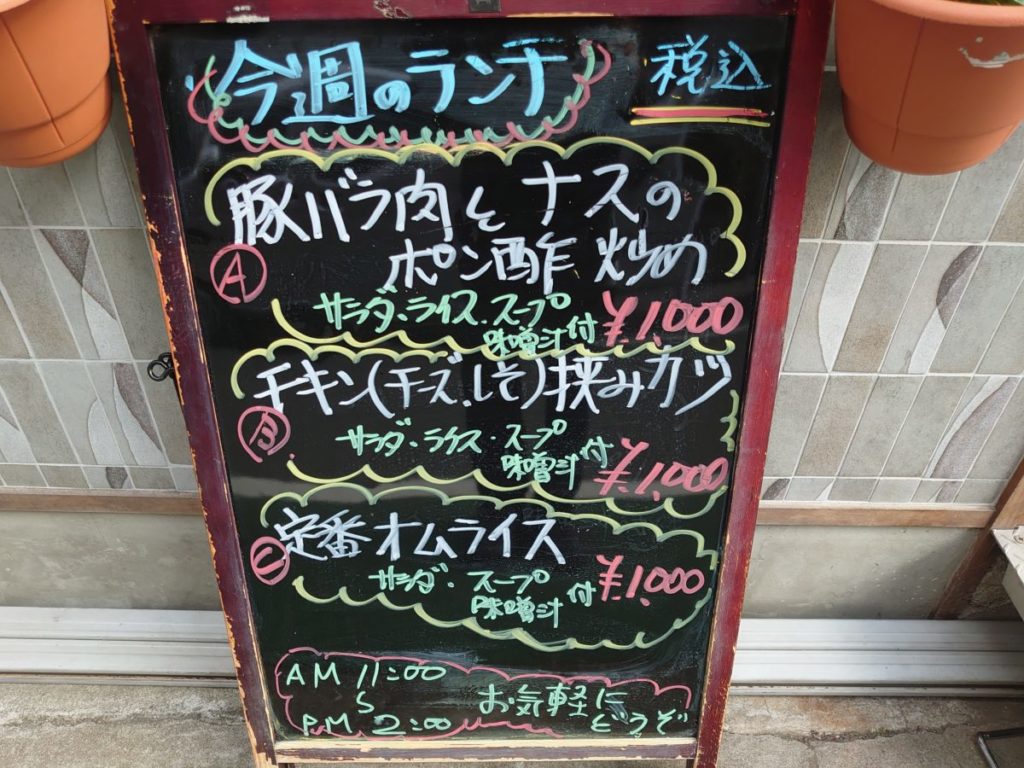 今週のランチ 税込
豚バラ肉とナスの
ポン酢炒め
A
サラダ、ライス、スープ
味噌汁付 ¥1,000
チキン(チーズ、しそ)挟みカツ
B
サラダ・ライス・スープ
味噌汁付 ¥1,000
定番オムライス
サラダ・スープ
味噌汁付 ¥1,000
AM 11:00
お気軽に
PM 2:00 どうぞ